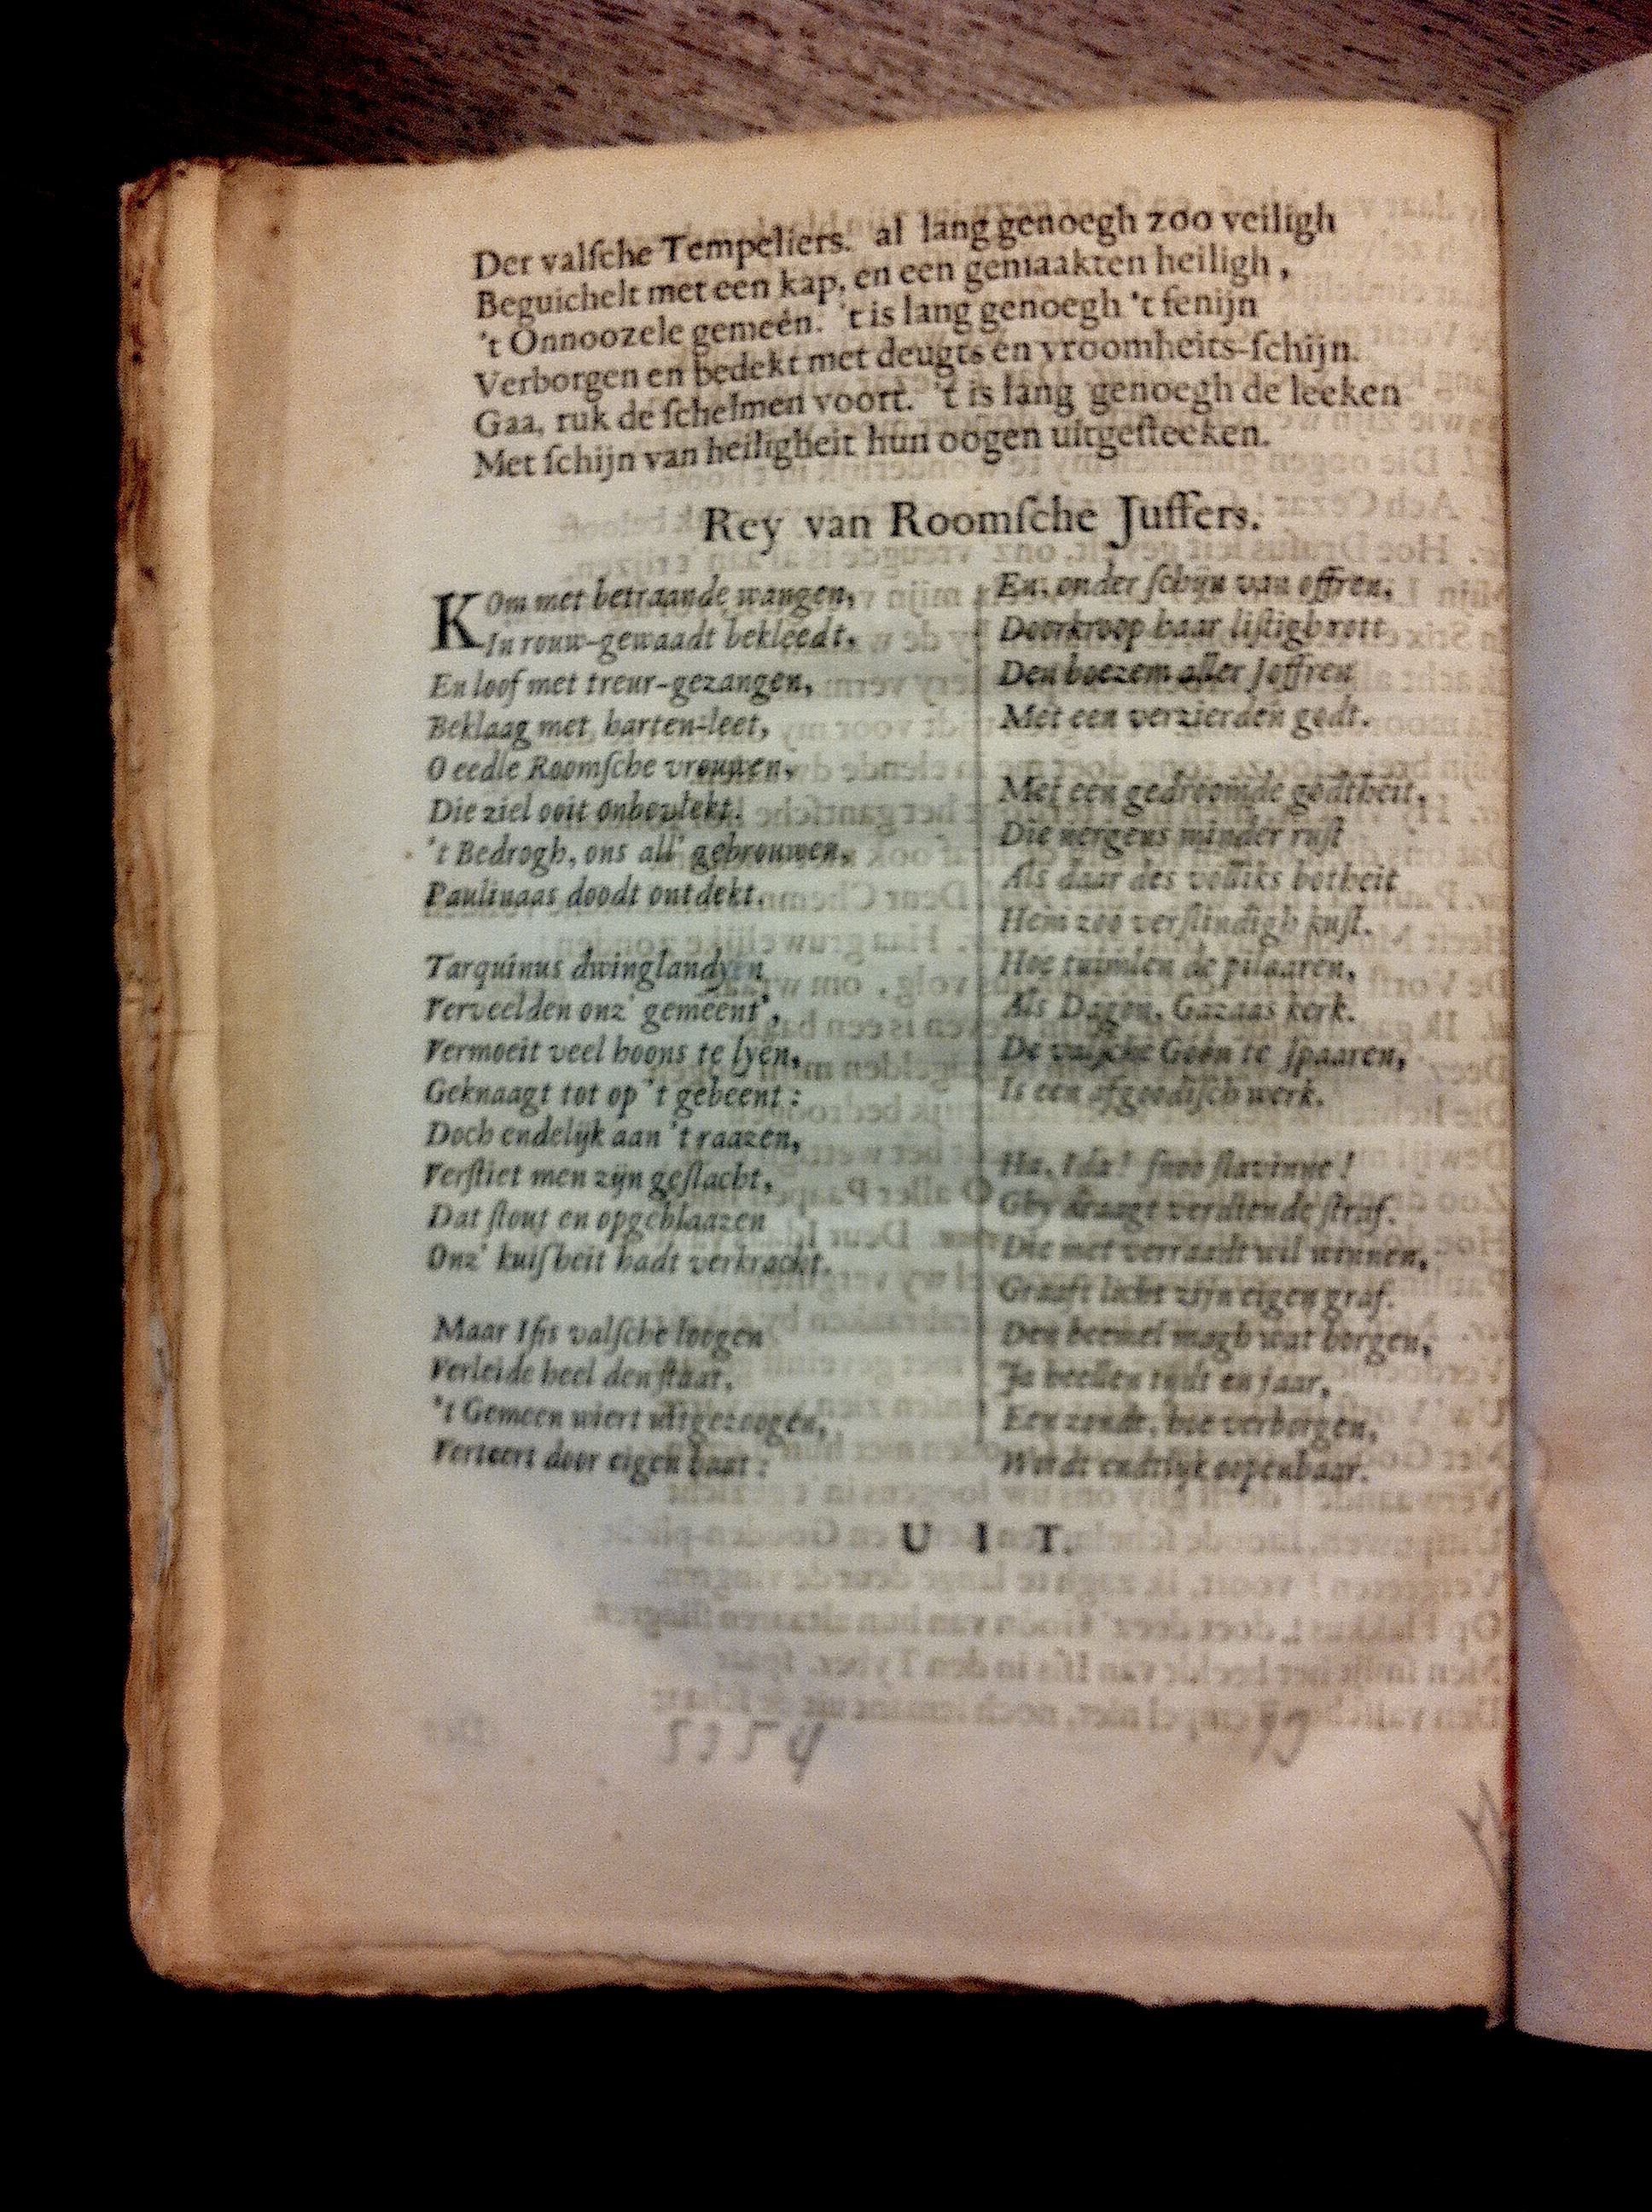 Der valſche Tempeliers. al lang genoegh zoo veiligh
Beguichelt met een kap, en een gemaakten heiligh,
't Onnoozele gemeên. 't is lang genoegh 't fenijn
Verborgen en bedekt met deugts en vroomheits-ſchijn.
Gaa, ruk de ſchelmen voort. 't is lang genoegh de leeken
Met ſchijn van heiligheit hun oogen uitgeſteeken.
Rey van Roomſche Juffers.
KOm met betraande wangen,
In rouw-gewaadt bekleedt,
En loof met treur-gezangen,
Beklaag met harten-leet,
O eedle Roomſche vrouwen,
Die ziel ooit onbevlekt.
't Bedrogh, ons all' gebrouwen,
Paulinaas doodt ontdekt.
Tarquinus dwinglandyen
Verveelden onz' gemeent',
Vermoeit veel hoons te lyen,
Geknaagt tot op 't gebeent:
Doch endelijk aan 't raazen,
Verſtiet men zijn geſlacht,
Dat ſtout en opgeblaazen
Onz' kuiſheit hadt verkracht.
Maar Iſis valſche loogen
Verleide heel den ſtaat.
't Gemeen wiert uitgezoogen,
Verteert door eigen baat:
En, onder ſchijn van offren,
Doorkroop haar liſtigh rott
Den boezem aller Joffren
Met een verzierden godt.
Met een gedroomde godtheit,
Die nergens minder ruſt
Als daar des volks botheit
Hem zoo verſlindigh kuſt.
Hoe tuimlen de pilaaren,
Als Dagon, Gazaas kerk.
De valſche Goôn te ſpaaren,
Is een afgoodiſch werk.
Ha, Ida! ſnoo ſlavinne!
Ghy draagt verdiende ſtraf.
Die met verraadt wil winnen,
Graaft licht zijn eigen graf.
Den heemel magh wat borgen,
Ja heelen tijdt en jaar,
Een zonde, hoe verborgen,
Wordt endtlijk oopenbaar.
U I T.
5354